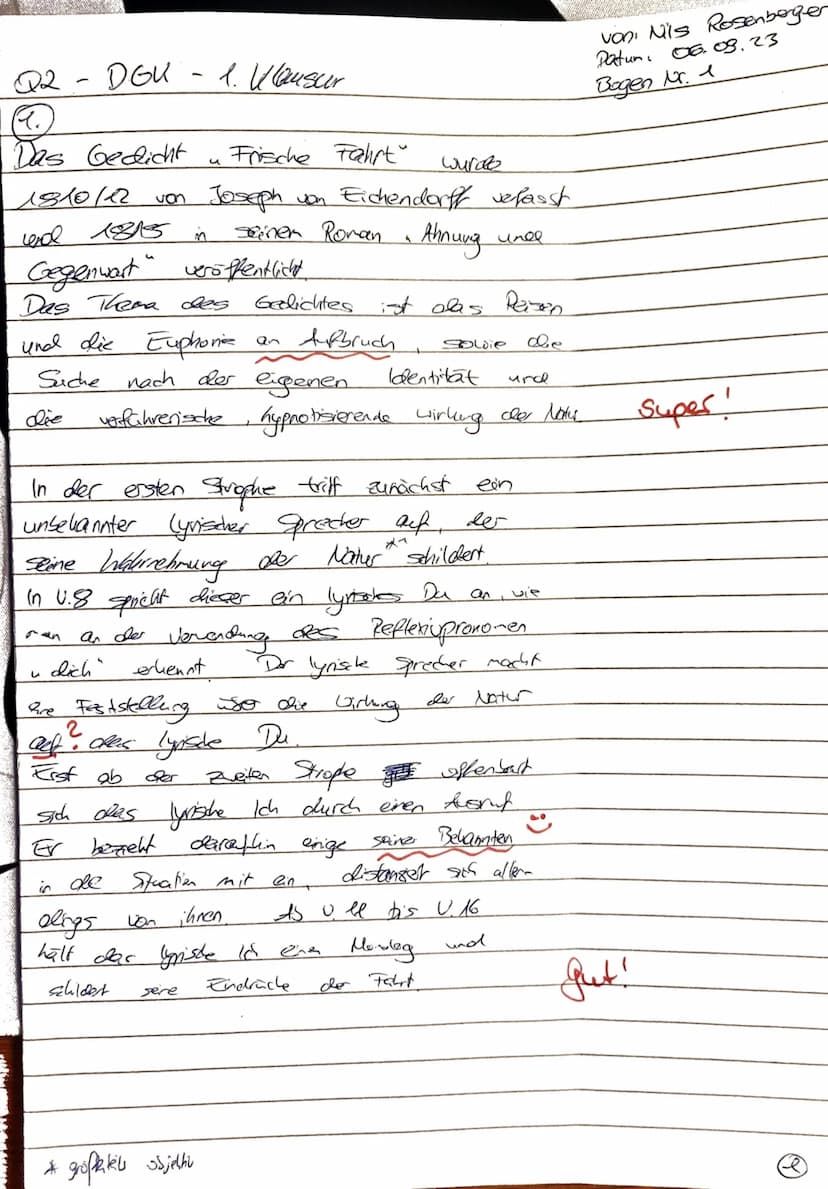 von: Nils Rosenberger
Datum: 06.09.23
Bogen Nr. 1
Q2 - DGK - 1. Klausur
1.
Das Gedicht „Frische Fahrt“ wurde
1810/12 von Joseph von Eichendorff verfasst
und 1815 in seinem Roman „Ahnung und
Gegenwart“ veröffentlicht.
Das Thema des Gedichtes ist das Reisen
und die Euphorie an Aufbruch, sowie die
Suche nach der eigenen Identität und
die verführerische, hypnotisierende Wirkung der Natur. Super!
In der ersten Strophe triff zunächst ein
unbekannter lyrischer Sprecher auf, der
seine Wahrnehmung der Natur *1 schildert.
In V.8 spricht dieser ein lyrisches Du an, wie
man an der Verwendung des Reflexivpronomen
„dich“ erkennt. Der lyrische Sprecher macht
eine Feststellung über die Wirkung der Natur
auf? das lyrische Du.
Erst ab der zweiten Strope offenbart
sich das lyrische Ich durch einen Ausruf.
Er bezieht daraufhin einige seiner Bekannten
in die Situation mit ein, distanziert sich aller-
dings von ihnen. Ab V. 11 bis V. 16
hält das lyrische Ich einen Monolog und
schildert seine Eindrücke der Fahrt. Gut!
* größtteils objektiv